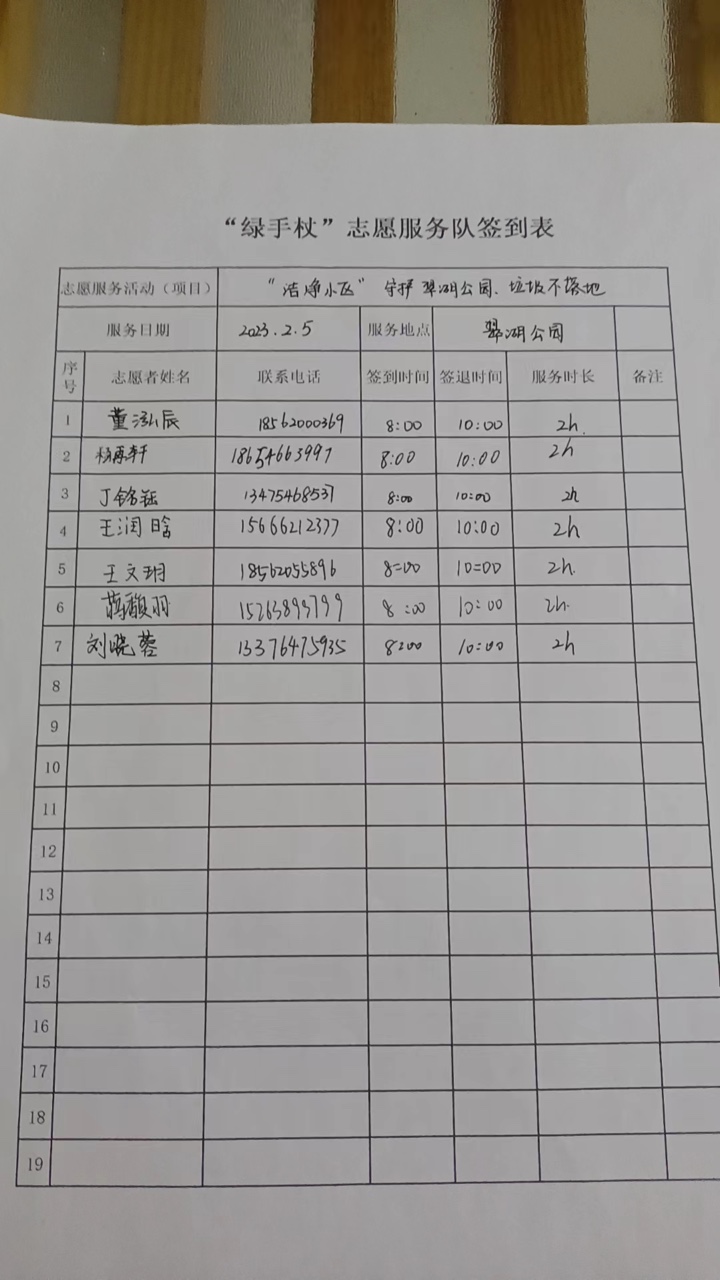 “绿手杖”志愿服务队签到表
志愿服务活动（项目） “洁净小区” 守护翠湖公园、垃圾不落地
服务日期 2023.2.5 服务地点 翠湖公园
序号 志愿者姓名 联系电话 签到时间 签退时间 服务时长 备注
1 董泓辰 18562000369 8:00 10:00 2h.
2 杨再轩 18654663997 8:00 10:00 2h
3 丁铭钰 13475468537 8:00 10:00 2h
4 王润晗 15666212377 8:00 10:00 2h
5 王文玥 18562055896 8=00 10=00 2h.
6 8:00 10:00 2h.
7 刘晓蓉 13376475935 8:00 10:00 2h
8
9
10
11
12
13
14
15
16
17
18
19